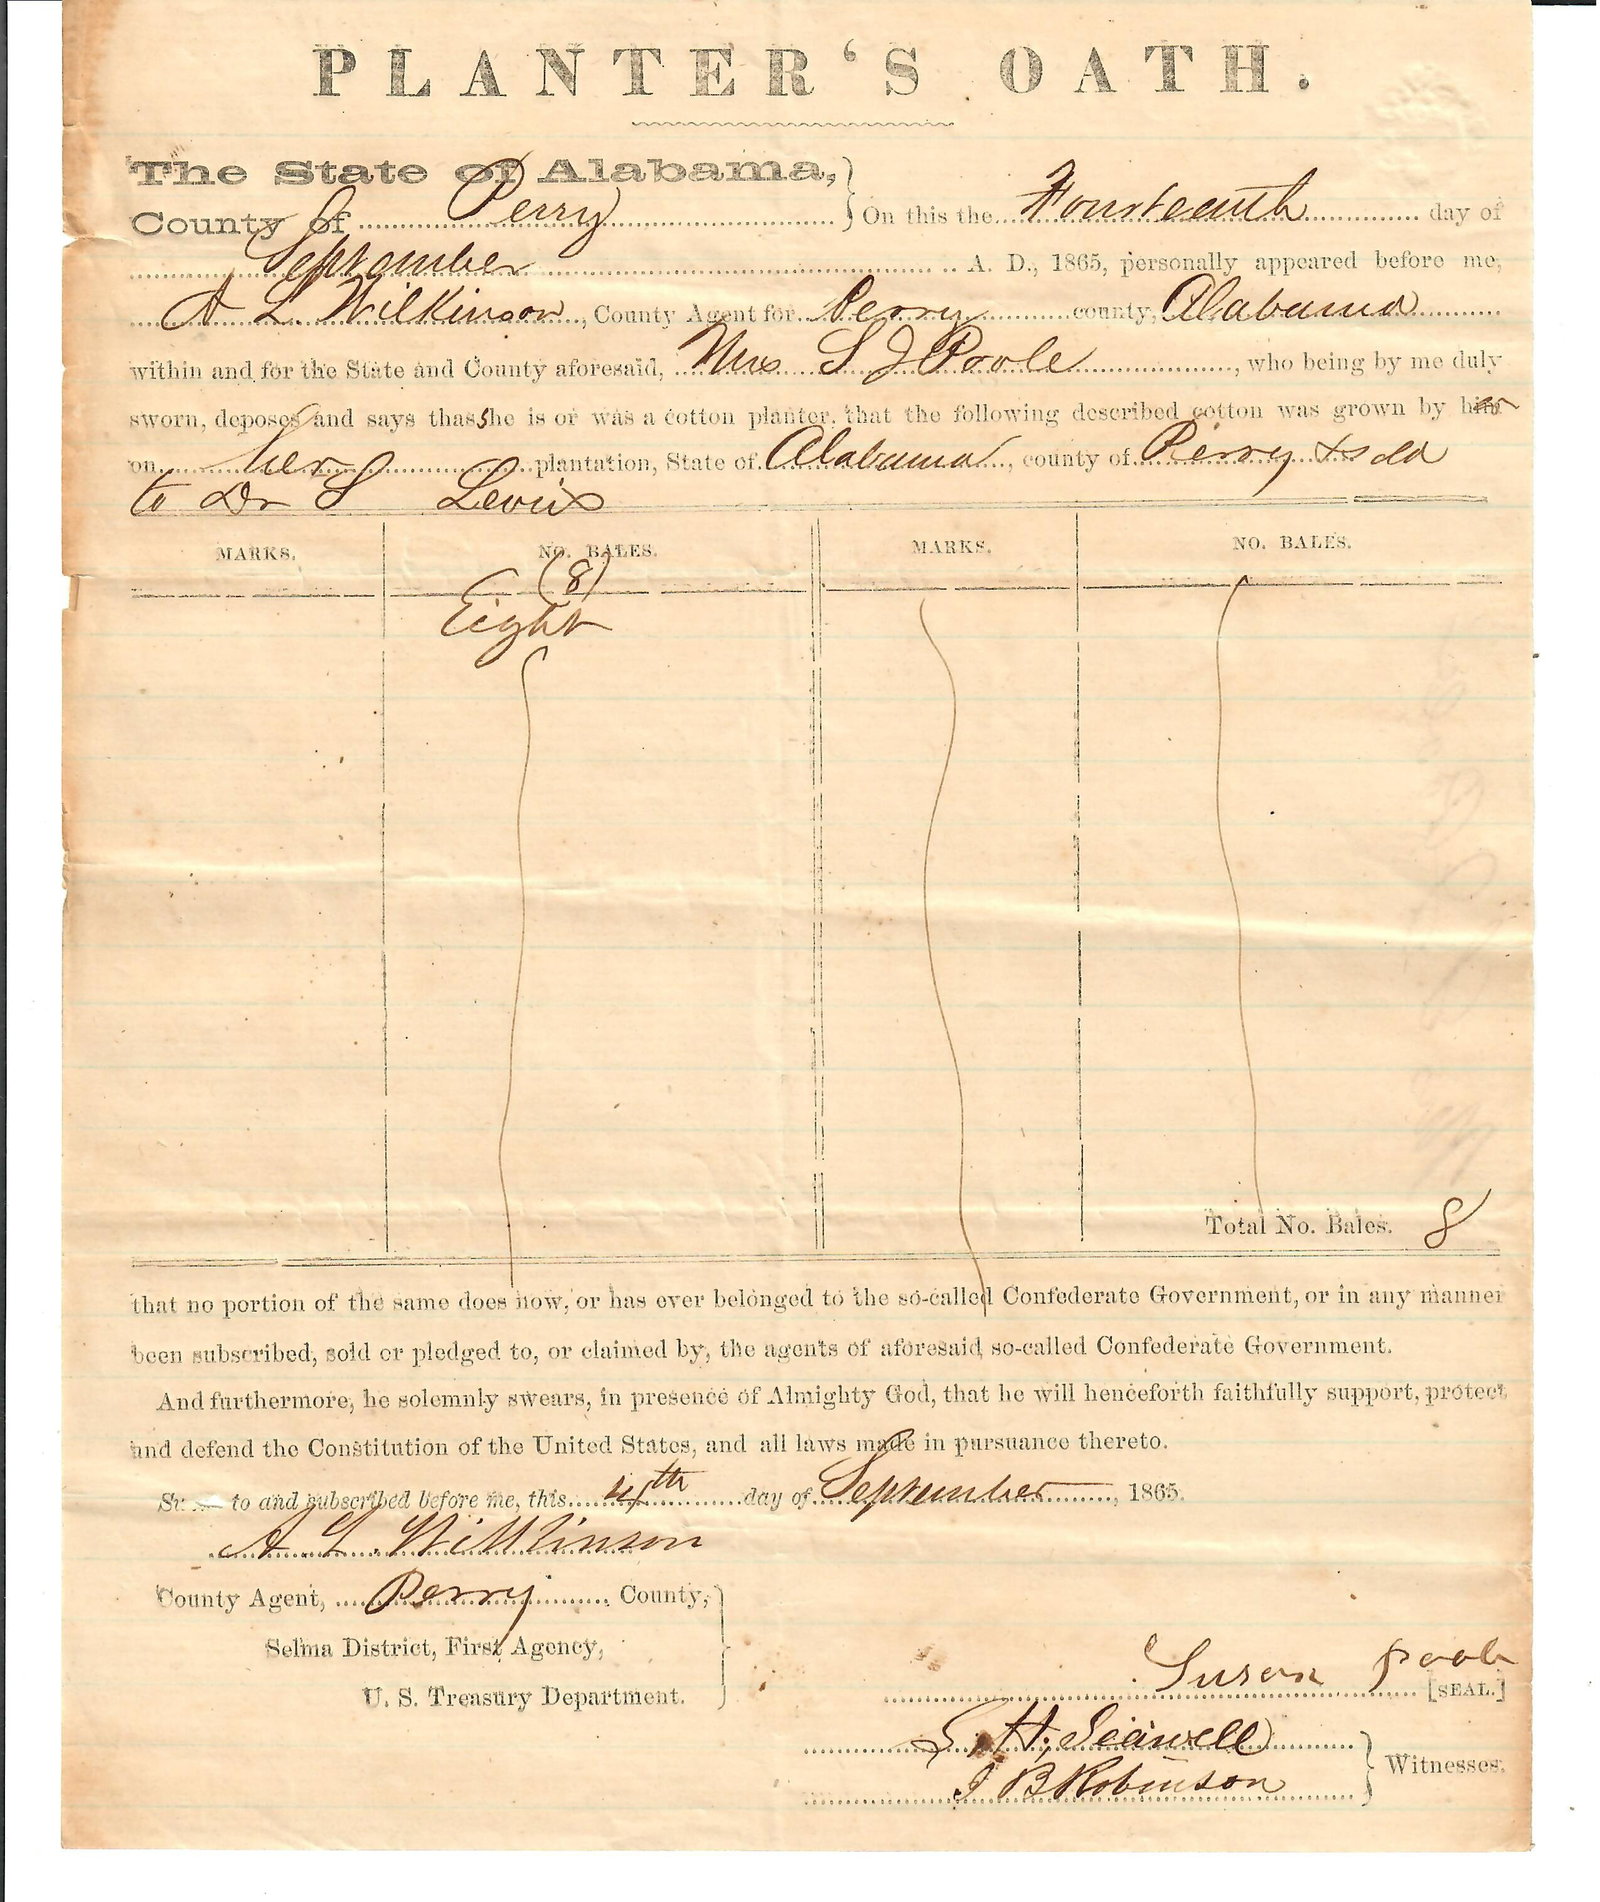 PLANTER'S OATH.
The State of Alabama,
County of Perry On this the Fourteenth day of
September A. D., 1865, personally appeared before me,
A L. Wilkinson, County Agent for Perry county, Alabama
within and for the State and County aforesaid, Mrs S J Poole, who being by me duly
sworn, deposes and says that she is or was a cotton planter, that the following described cotton was grown by her
on her plantation, State of Alabama, county of Perry & sold
to Dr S
MARKS. NO. BALES. MARKS. NO. BALES.
(8)
Eight
Total No. Bales. 8
that no portion of the same does now, or has ever belonged to the so-called Confederate Government, or in any manner
been subscribed, sold or pledged to, or claimed by, the agents of aforesaid so-called Confederate Government.
And furthermore, he solemnly swears, in presence of Almighty God, that he will henceforth faithfully support, protect
and defend the Constitution of the United States, and all laws made in pursuance thereto.
to and subscribed before me, this day of September, 1865.
A. L. Wilkinson
County Agent, Perry County,
Selma District, First Agency,
U. S. Treasury Department.
Susan Poole [SEAL.]
S. H. Seawell
J B Robinson Witnesses.